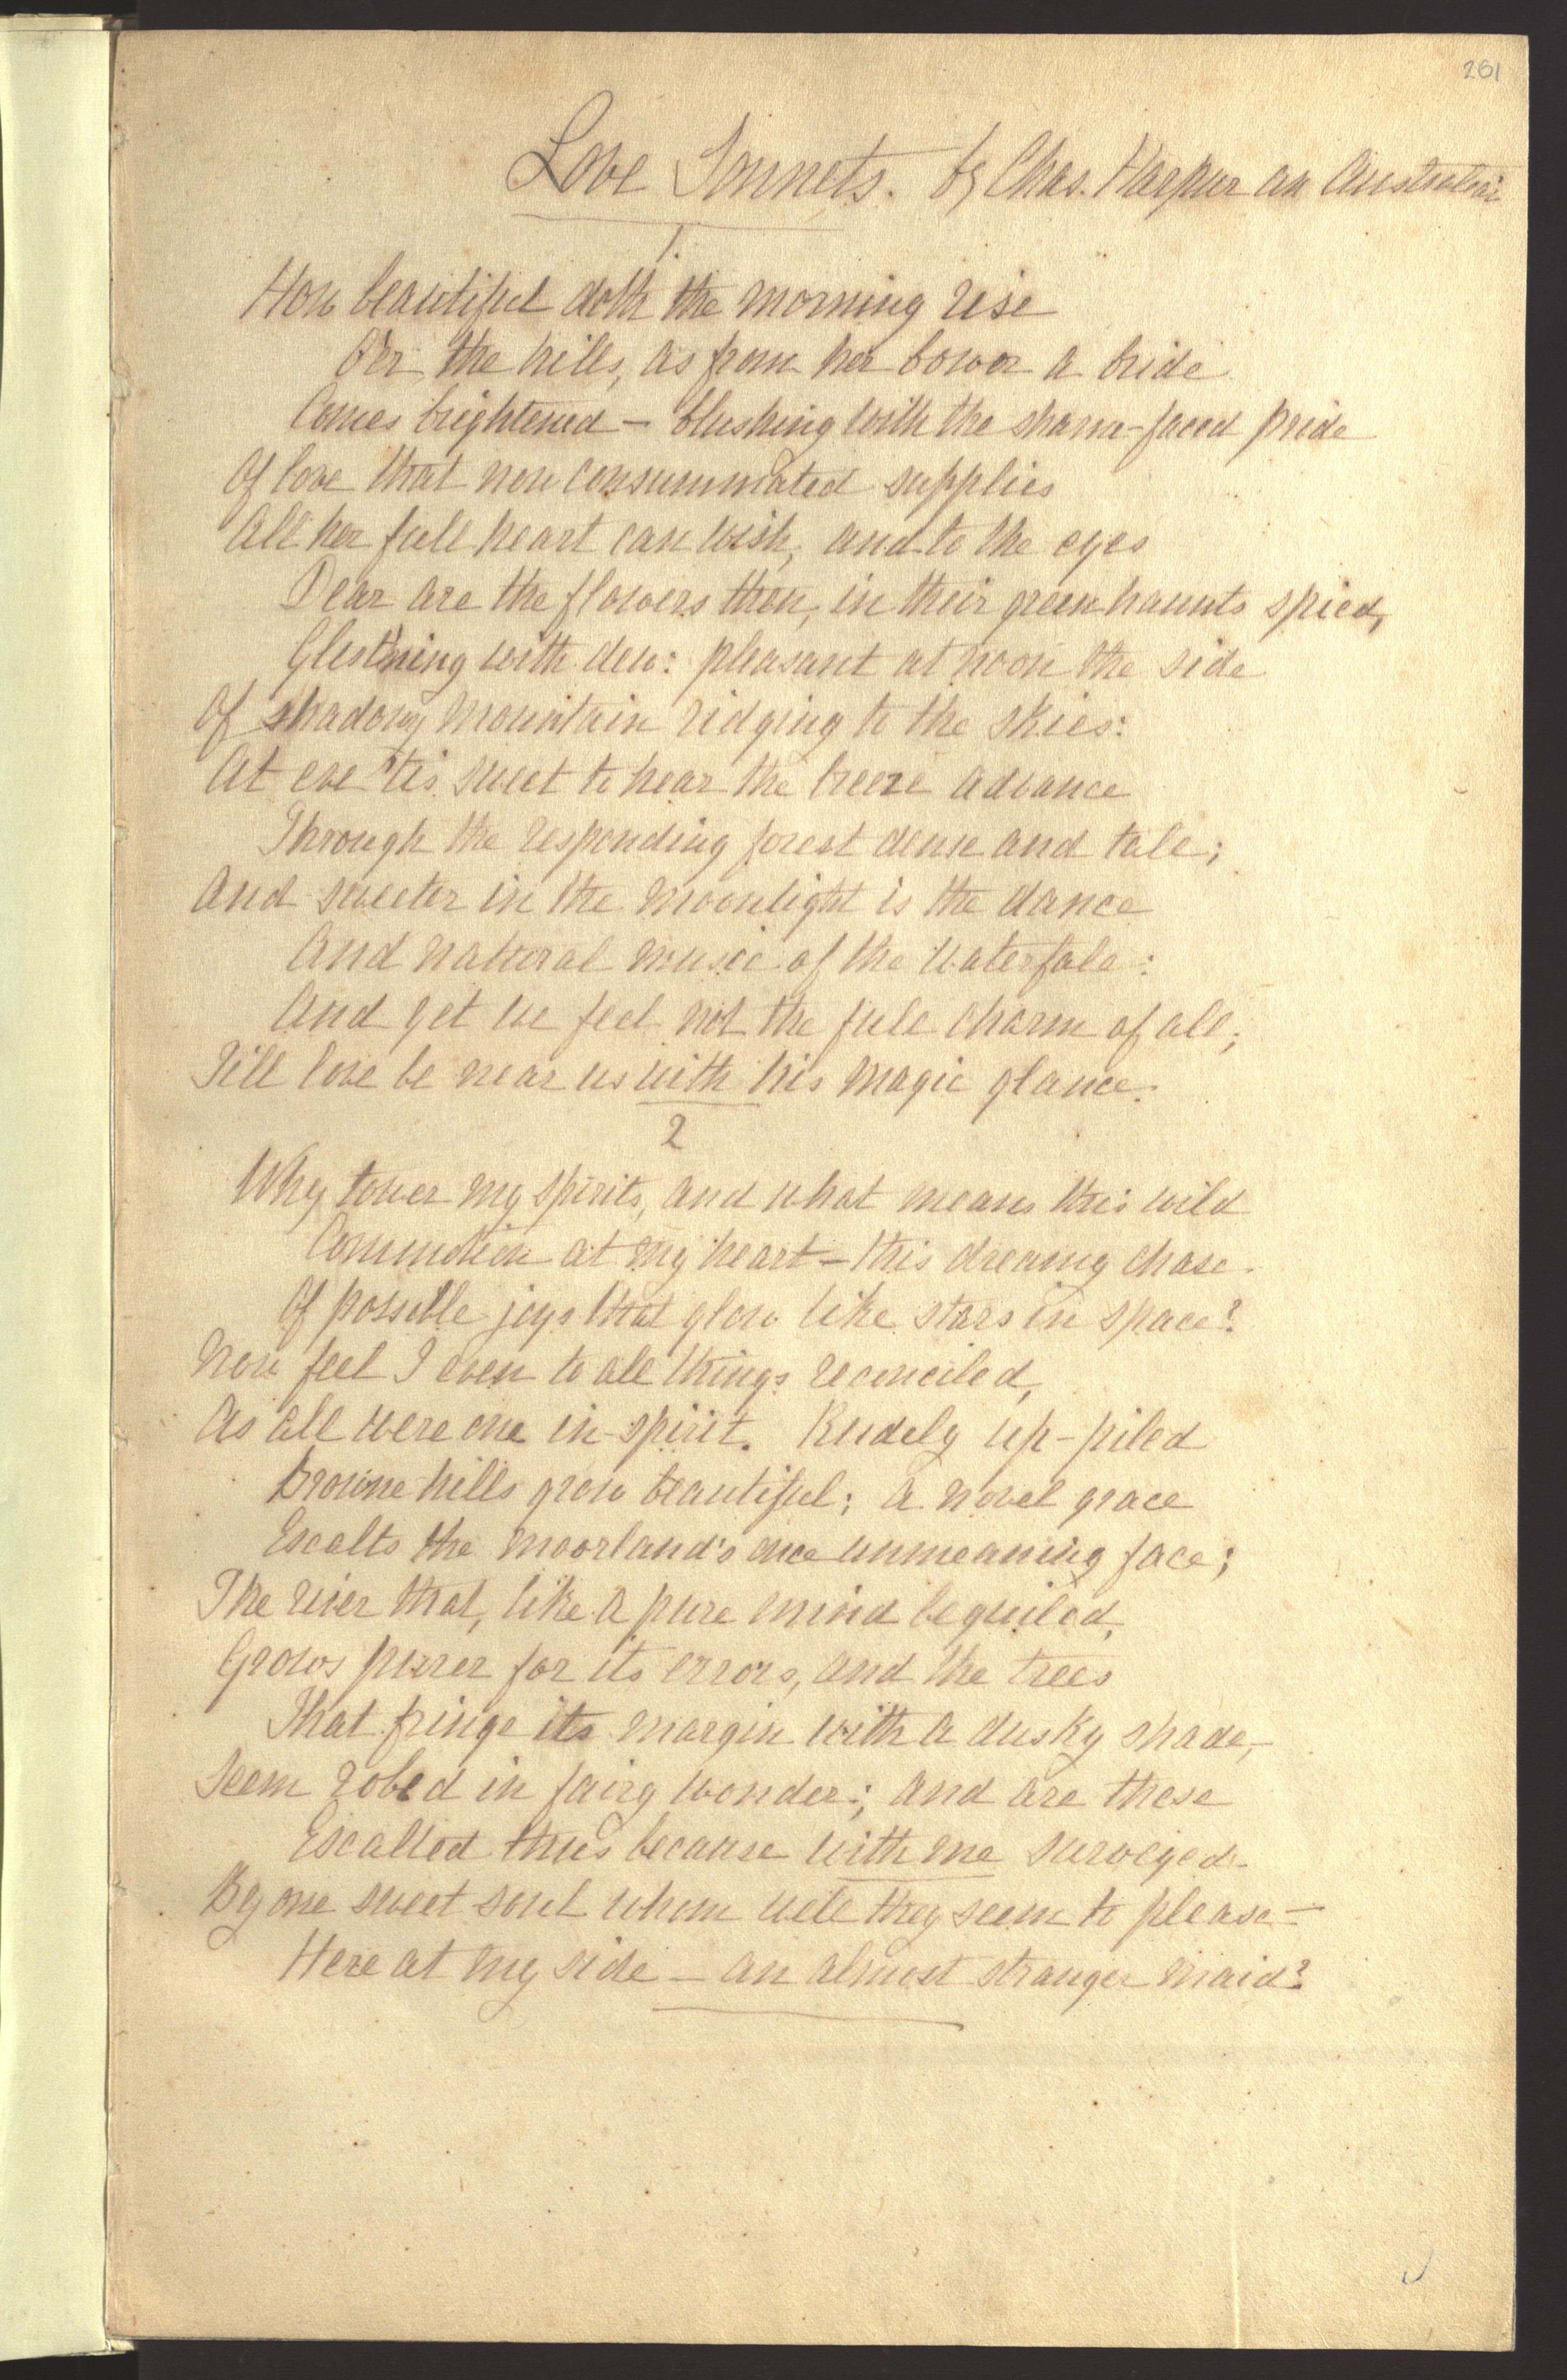 261
Love Sonnets. by Chas. Harpur an Australian
1.
How beautiful doth the morning rise
O'er the hills, as from her bower a bride
Comes brightened — blushing with the shame-faced pride
Of love that now consummated supplies
All her full heart can wish, and to the eyes
Dear are the flowers then, in their green haunts spied,
Glist'ning with dew: pleasant at noon the side
Of shadowy mountain ridging to the skies:
At eve 'tis sweet to hear the breeze advance
Through the responding forest dense and tall;
And sweeter in the moonlight is the dance
And natural music of the waterfall:
And yet we feel not the full charm of all,
Till love be near us with his magic glance.
2
Why tower my spirits, and what means this wild
Commotion at my heart — this dreamy chase
Of possible joys that glow like stars in space?
Now feel I even to all things reconciled,
As all were one in spirit. Rudely up-piled
Browne hills grow beautiful; a novel grace
Exalts the moorland's once unmeaning face;
The river that, like a pure mind beguiled,
Grows purer for its errors, and the trees
That fringe its margin with a dusky shade,
Seem robed in fairy wonder; and are these
Exalted thus because with me surveyed
By one sweet soul whom well they seem to please —
Here at my side — an almost stranger maid?